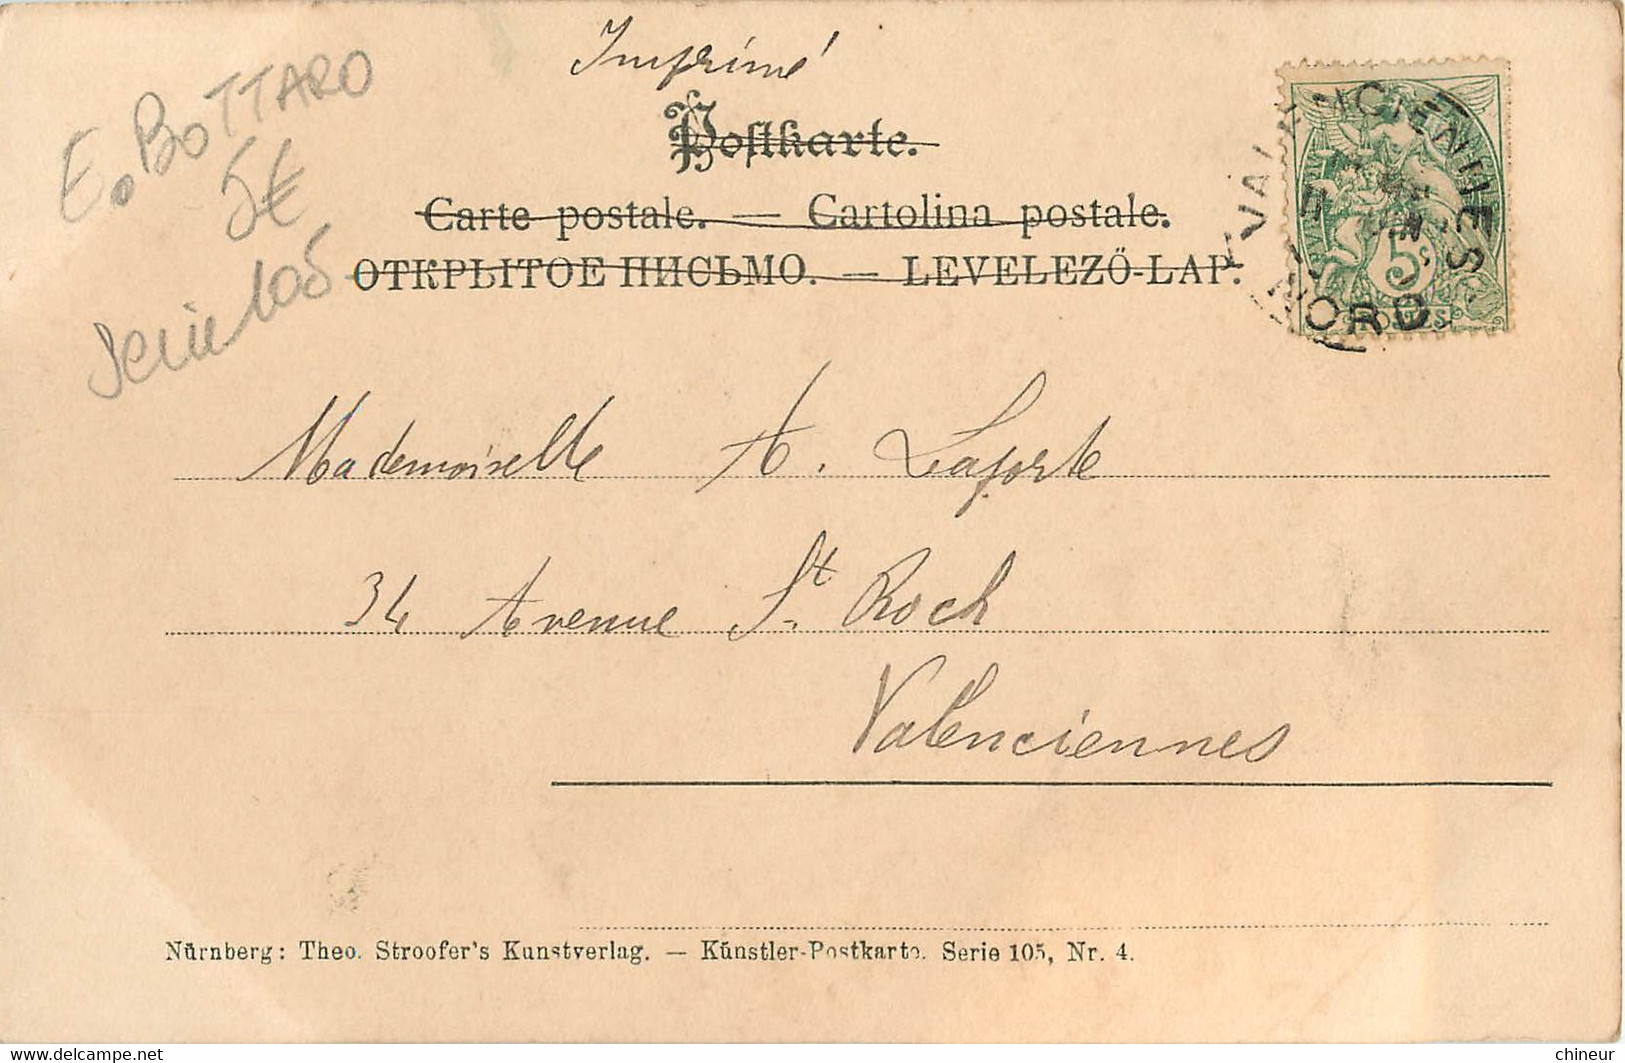 Imprimé
E. BOTTARO
5€
Serie 105
Postkarte.
Carte postale. — Cartolina postale.
ОТКРЫТОЕ ПИСЬМО. — LEVELEZŐ-LAP.
VALENCIENNES
NORD
5
POSTES
Mademoiselle A. Laforte
34 Avenue St. Roch
Valenciennes
Nürnberg: Theo. Stroofer's Kunstverlag. — Künstler-Postkarte. Serie 105, Nr. 4.
Delcampe.com
chineur